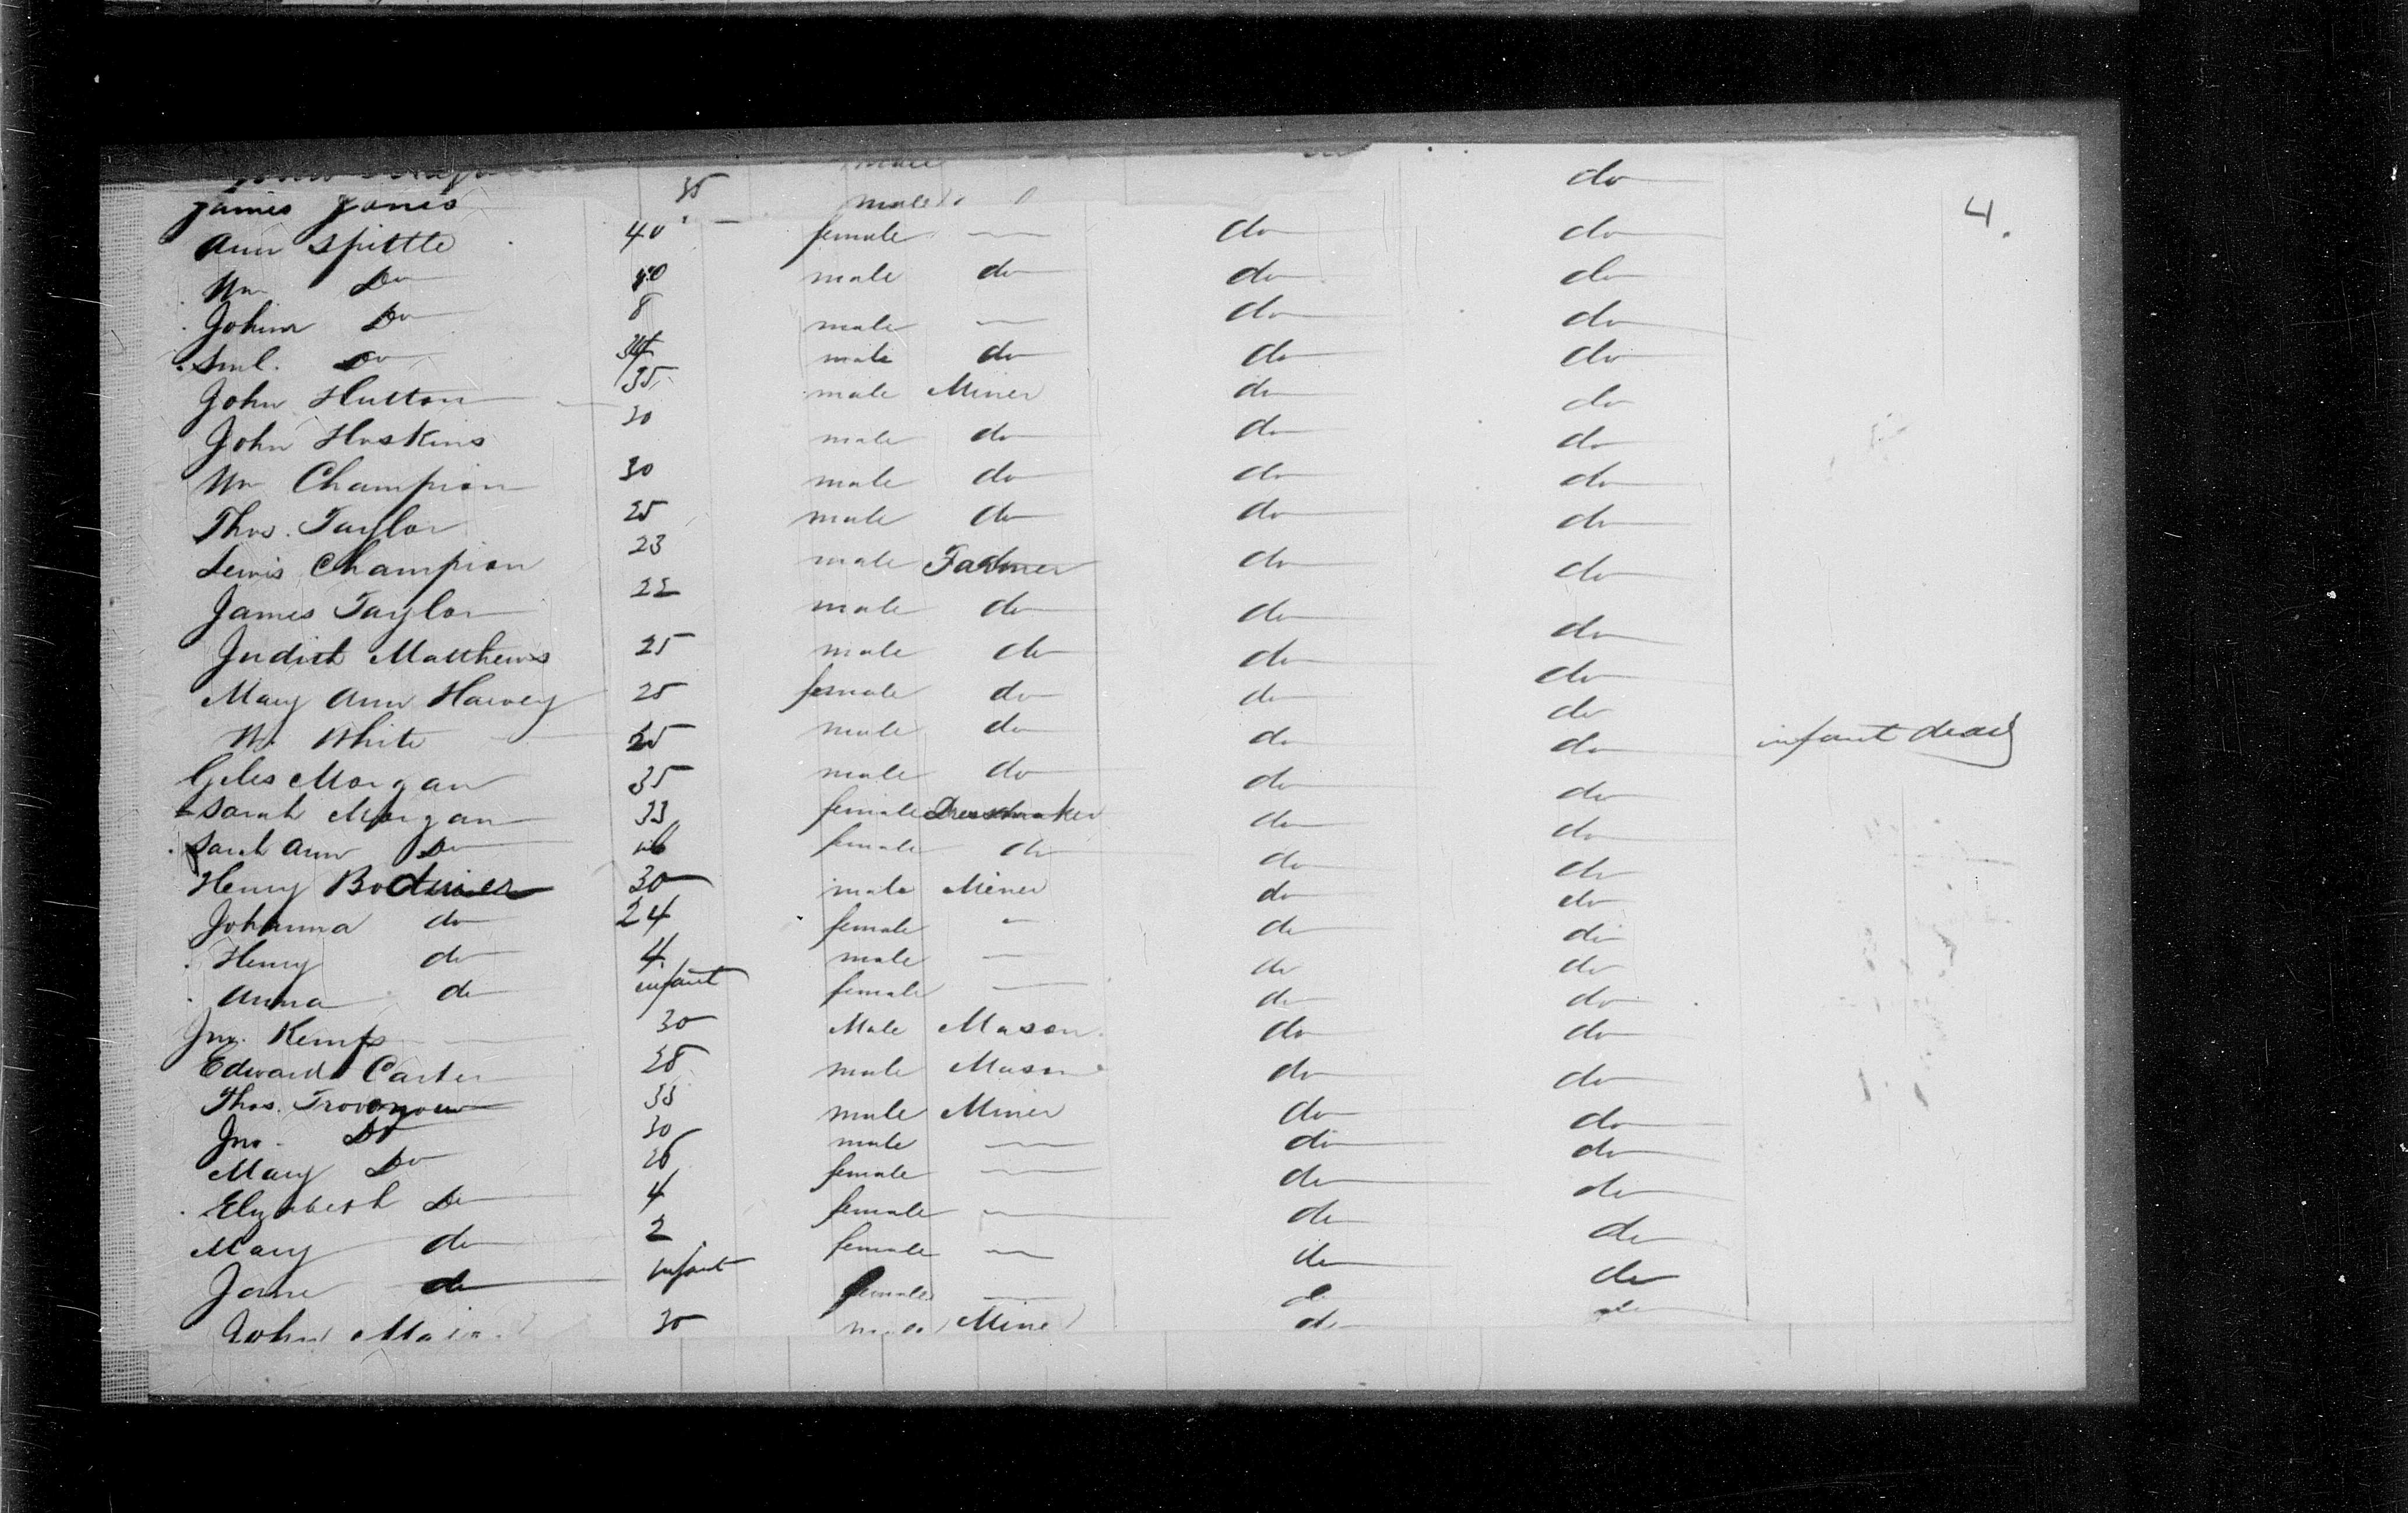 male
James Jones 35 male do
4.
Ann Spittle 40 female — do do
Wm Do 40 male do do do
John Do 8 male — do do
Saml. Do 34 male do do do
John Hutton 35 male Miner do do
John Hoskins 30 male do do do
Wm Champion 30 male do do do
Thos. Taylor 25 male do do do
Lewis Champion 23 male Farmer do do
James Taylor 22 male do do do
Judith Matthews 25 male do do do
Mary Ann Harvey 25 female do do do
W. White 25 male do do do infant dead
Giles Morgan 35 male do do do
Sarah Morgan 33 female Dressmaker do do
Sarah Ann Do female do do do
Henry Bodiner 30 male Miner do do
Johanna do 24 female — do do
Henry do 4 male — do do
Anna do infant female — do do
Jno. Kemp 30 Male Mason do do
Edward Carter 28 male Mason do do
Thos. 33 male Miner do do
Jno. Do 30 male — do do
Mary Do 26 female — do do
Elizabeth Do 4 female — do do
Mary do 2 female — do do
Jane do infant female — do do
John 30 male Miner do do